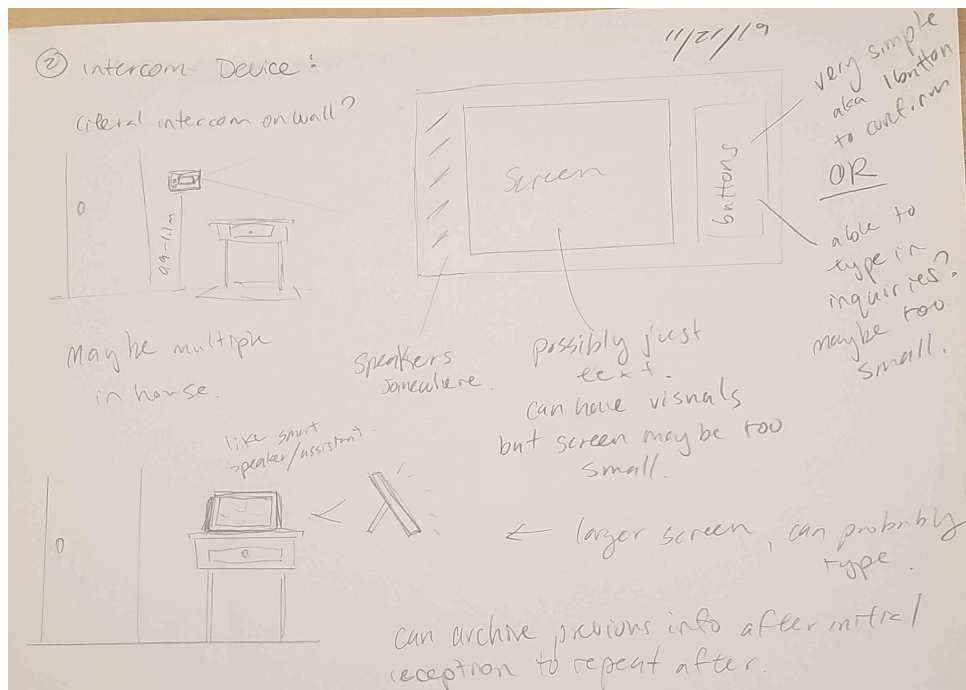 11/21/19
② Intercom Device:
Literal intercom on wall?
0.9-1.1m
Maybe multiple
in house.
Screen
buttons
very simple
aka 1 button
to confirm
OR
able to
type in
inquiries?
maybe too
small.
Speakers
somewhere.
possibly just
text.
can have visuals
but screen may be too
small.
like smart
speaker/assistant.
← larger screen, can probably
type.
can archive previous info after initial
reception to repeat after.